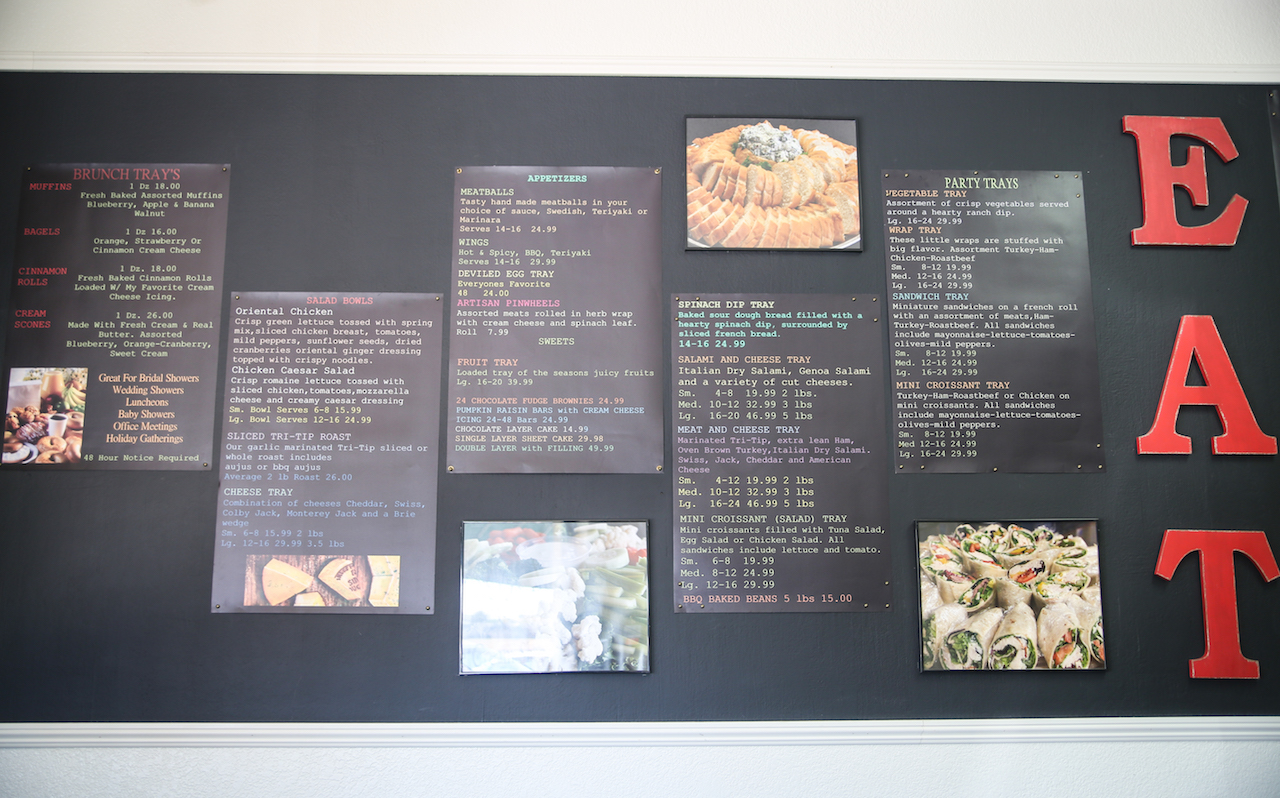 BRUNCH TRAY'S
MUFFINS
1 Dz 18.00
Fresh Baked Assorted Muffins
Blueberry, Apple & Banana
Walnut
BAGELS
1 Dz 16.00
Orange, Strawberry Or
Cinnamon Cream Cheese
CINNAMON
ROLLS
1 Dz. 18.00
Fresh Baked Cinnamon Rolls
Loaded W/ My Favorite Cream
Cheese Icing.
CREAM
SCONES
1 Dz. 26.00
Made With Fresh Cream & Real
Butter. Assorted
Blueberry, Orange-Cranberry,
Sweet Cream
Great For Bridal Showers
Wedding Showers
Luncheons
Baby Showers
Office Meetings
Holiday Gatherings
48 Hour Notice Required
SALAD BOWLS
Oriental Chicken
Crisp green lettuce tossed with spring
mix,sliced chicken breast, tomatoes,
mild peppers, sunflower seeds, dried
cranberries oriental ginger dressing
topped with crispy noodles.
Chicken Caesar Salad
Crisp romaine lettuce tossed with
sliced chicken,tomatoes,mozzarella
cheese and creamy caesar dressing
Sm. Bowl Serves 6-8 15.99
Lg. Bowl Serves 12-16 24.99
SLICED TRI-TIP ROAST
Our garlic marinated Tri-Tip sliced or
whole roast includes
aujus or bbq aujus
Average 2 lb Roast 26.00
CHEESE TRAY
Combination of cheeses Cheddar, Swiss,
Colby Jack, Monterey Jack and a Brie
wedge
Sm. 6-8 15.99 2 lbs
Lg. 12-16 29.99 3.5 lbs
APPETIZERS
MEATBALLS
Tasty hand made meatballs in your
choice of sauce, Swedish, Teriyaki or
Marinara
Serves 14-16 24.99
WINGS
Hot & Spicy, BBQ, Teriyaki
Serves 14-16 29.99
DEVILED EGG TRAY
Everyones Favorite
48 24.00
ARTISAN PINWHEELS
Assorted meats rolled in herb wrap
with cream cheese and spinach leaf.
Roll 7.99
SWEETS
FRUIT TRAY
Loaded tray of the seasons juicy fruits
Lg. 16-20 39.99
24 CHOCOLATE FUDGE BROWNIES 24.99
PUMPKIN RAISIN BARS with CREAM CHEESE
ICING 24-48 Bars 24.99
CHOCOLATE LAYER CAKE 14.99
SINGLE LAYER SHEET CAKE 29.98
DOUBLE LAYER with FILLING 49.99
SPINACH DIP TRAY
Baked sour dough bread filled with a
hearty spinach dip, surrounded by
sliced french bread.
14-16 24.99
SALAMI AND CHEESE TRAY
Italian Dry Salami, Genoa Salami
and a variety of cut cheeses.
Sm. 4-8 19.99 2 lbs.
Med. 10-12 32.99 3 lbs
Lg. 16-20 46.99 5 lbs
MEAT AND CHEESE TRAY
Marinated Tri-Tip, extra lean Ham,
Oven Brown Turkey,Italian Dry Salami.
Swiss, Jack, Cheddar and American
Cheese
Sm. 4-12 19.99 2 lbs
Med. 10-12 32.99 3 lbs
Lg. 16-24 46.99 5 lbs
MINI CROISSANT (SALAD) TRAY
Mini croissants filled with Tuna Salad,
Egg Salad or Chicken Salad. All
sandwiches include lettuce and tomato.
Sm. 6-8 19.99
Med. 8-12 24.99
Lg. 12-16 29.99
BBQ BAKED BEANS 5 lbs 15.00
PARTY TRAYS
VEGETABLE TRAY
Assortment of crisp vegetables served
around a hearty ranch dip.
Lg. 16-24 29.99
WRAP TRAY
These little wraps are stuffed with
big flavor. Assortment Turkey-Ham-
Chicken-Roastbeef
Sm. 8-12 19.99
Med. 12-16 24.99
Lg. 16-24 29.99
SANDWICH TRAY
Miniature sandwiches on a french roll
with an assortment of meats,Ham-
Turkey-Roastbeef. All sandwiches
include mayonnaise-lettuce-tomatoes-
olives-mild peppers.
Sm. 8-12 19.99
Med. 12-16 24.99
Lg. 16-24 29.99
MINI CROISSANT TRAY
Turkey-Ham-Roastbeef or Chicken on
mini croissants. All sandwiches
include mayonnaise-lettuce-tomatoes-
olives-mild peppers.
Sm. 8-12 19.99
Med 12-16 24.99
Lg. 16-24 29.99
EAT